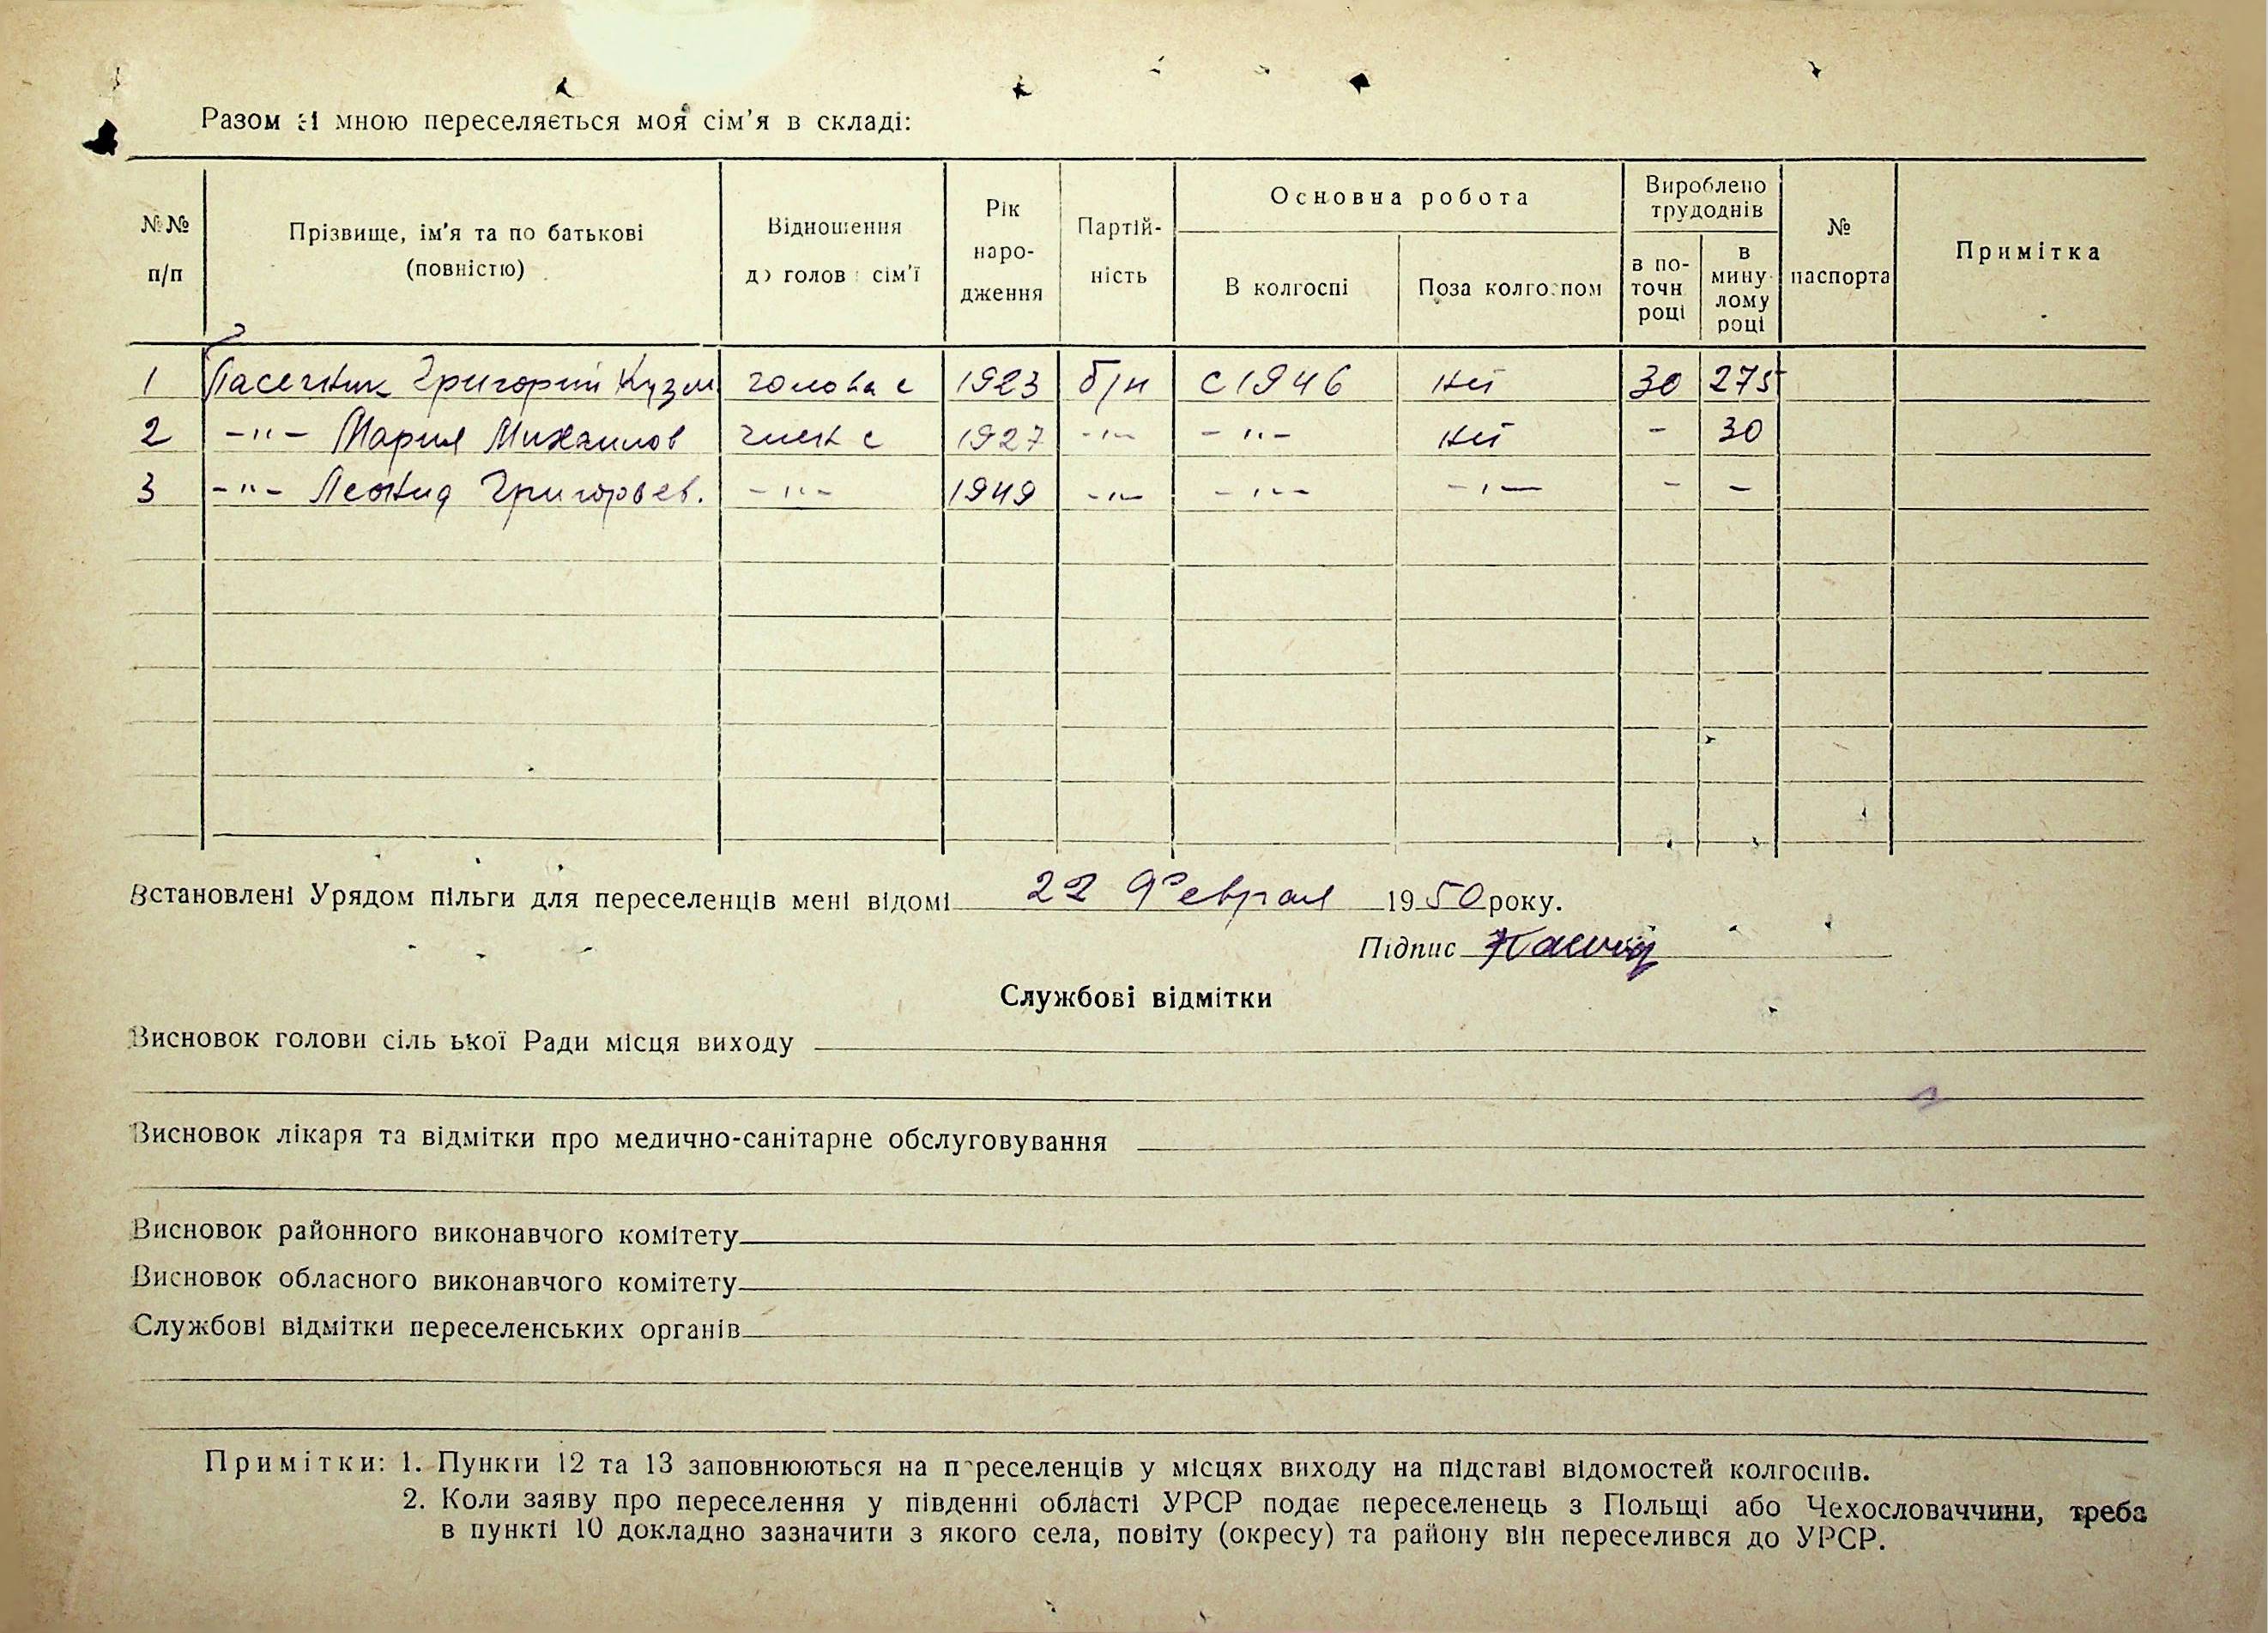 Разом зі мною переселяється моя сім'я в складі:
№№ п/п | Прізвище, ім'я та по батькові (повністю) | Відношення до голови сім'ї | Рік народження | Партійність | Основна робота | Вироблено трудоднів | № паспорта | Примітка
В колгоспі | Поза колгоспом | в поточн році | в минулому році
1 Пасечник Григорий Кузм голова с 1923 б/п с 1946 нет 30 275
2 -"- Мария Михаилов член с 1927 -"- -"- нет - 30
3 -"- Леонид Григорьев. -"- 1949 -"- -"- -"- - -
Встановлені Урядом пільги для переселенців мені відомі 22 Феврал 1950 року.
Підпис
Службові відмітки
Висновок голови сільської Ради місця виходу
Висновок лікаря та відмітки про медично-санітарне обслуговування
Висновок районного виконавчого комітету
Висновок обласного виконавчого комітету
Службові відмітки переселенських органів
Примітки: 1. Пункти 12 та 13 заповнюються на переселенців у місцях виходу на підставі відомостей колгоспів.
2. Коли заяву про переселення у південні області УРСР подає переселенець з Польщі або Чехословаччини, треба
в пункті 10 докладно зазначити з якого села, повіту (окресу) та району він переселився до УРСР.